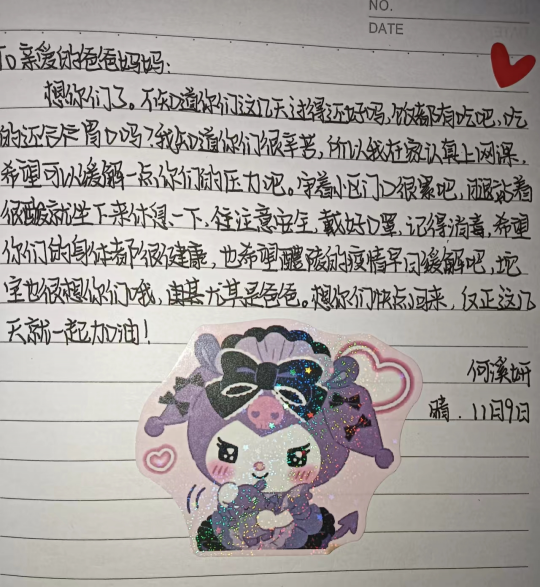 NO.
DATE
To亲爱的爸爸妈妈:
想你们了。不知道你们这几天过得还好吗,饭都有吃吧,吃
的还合胃口吗?我知道你们很辛苦,所以我在家认真上网课,
希望可以缓解一点你们的压力吧。守着小区门口很累吧,腿站着
很酸就坐下来休息一下,得注意安全,戴好口罩,记得消毒,希望
你们的身体都很健康,也希望醴陵的疫情早日缓解吧,
宝也很想你们哦,尤其是爸爸。想你们快点回来,反正这几
天就一起加油!
何溪妍
晴.11日9日